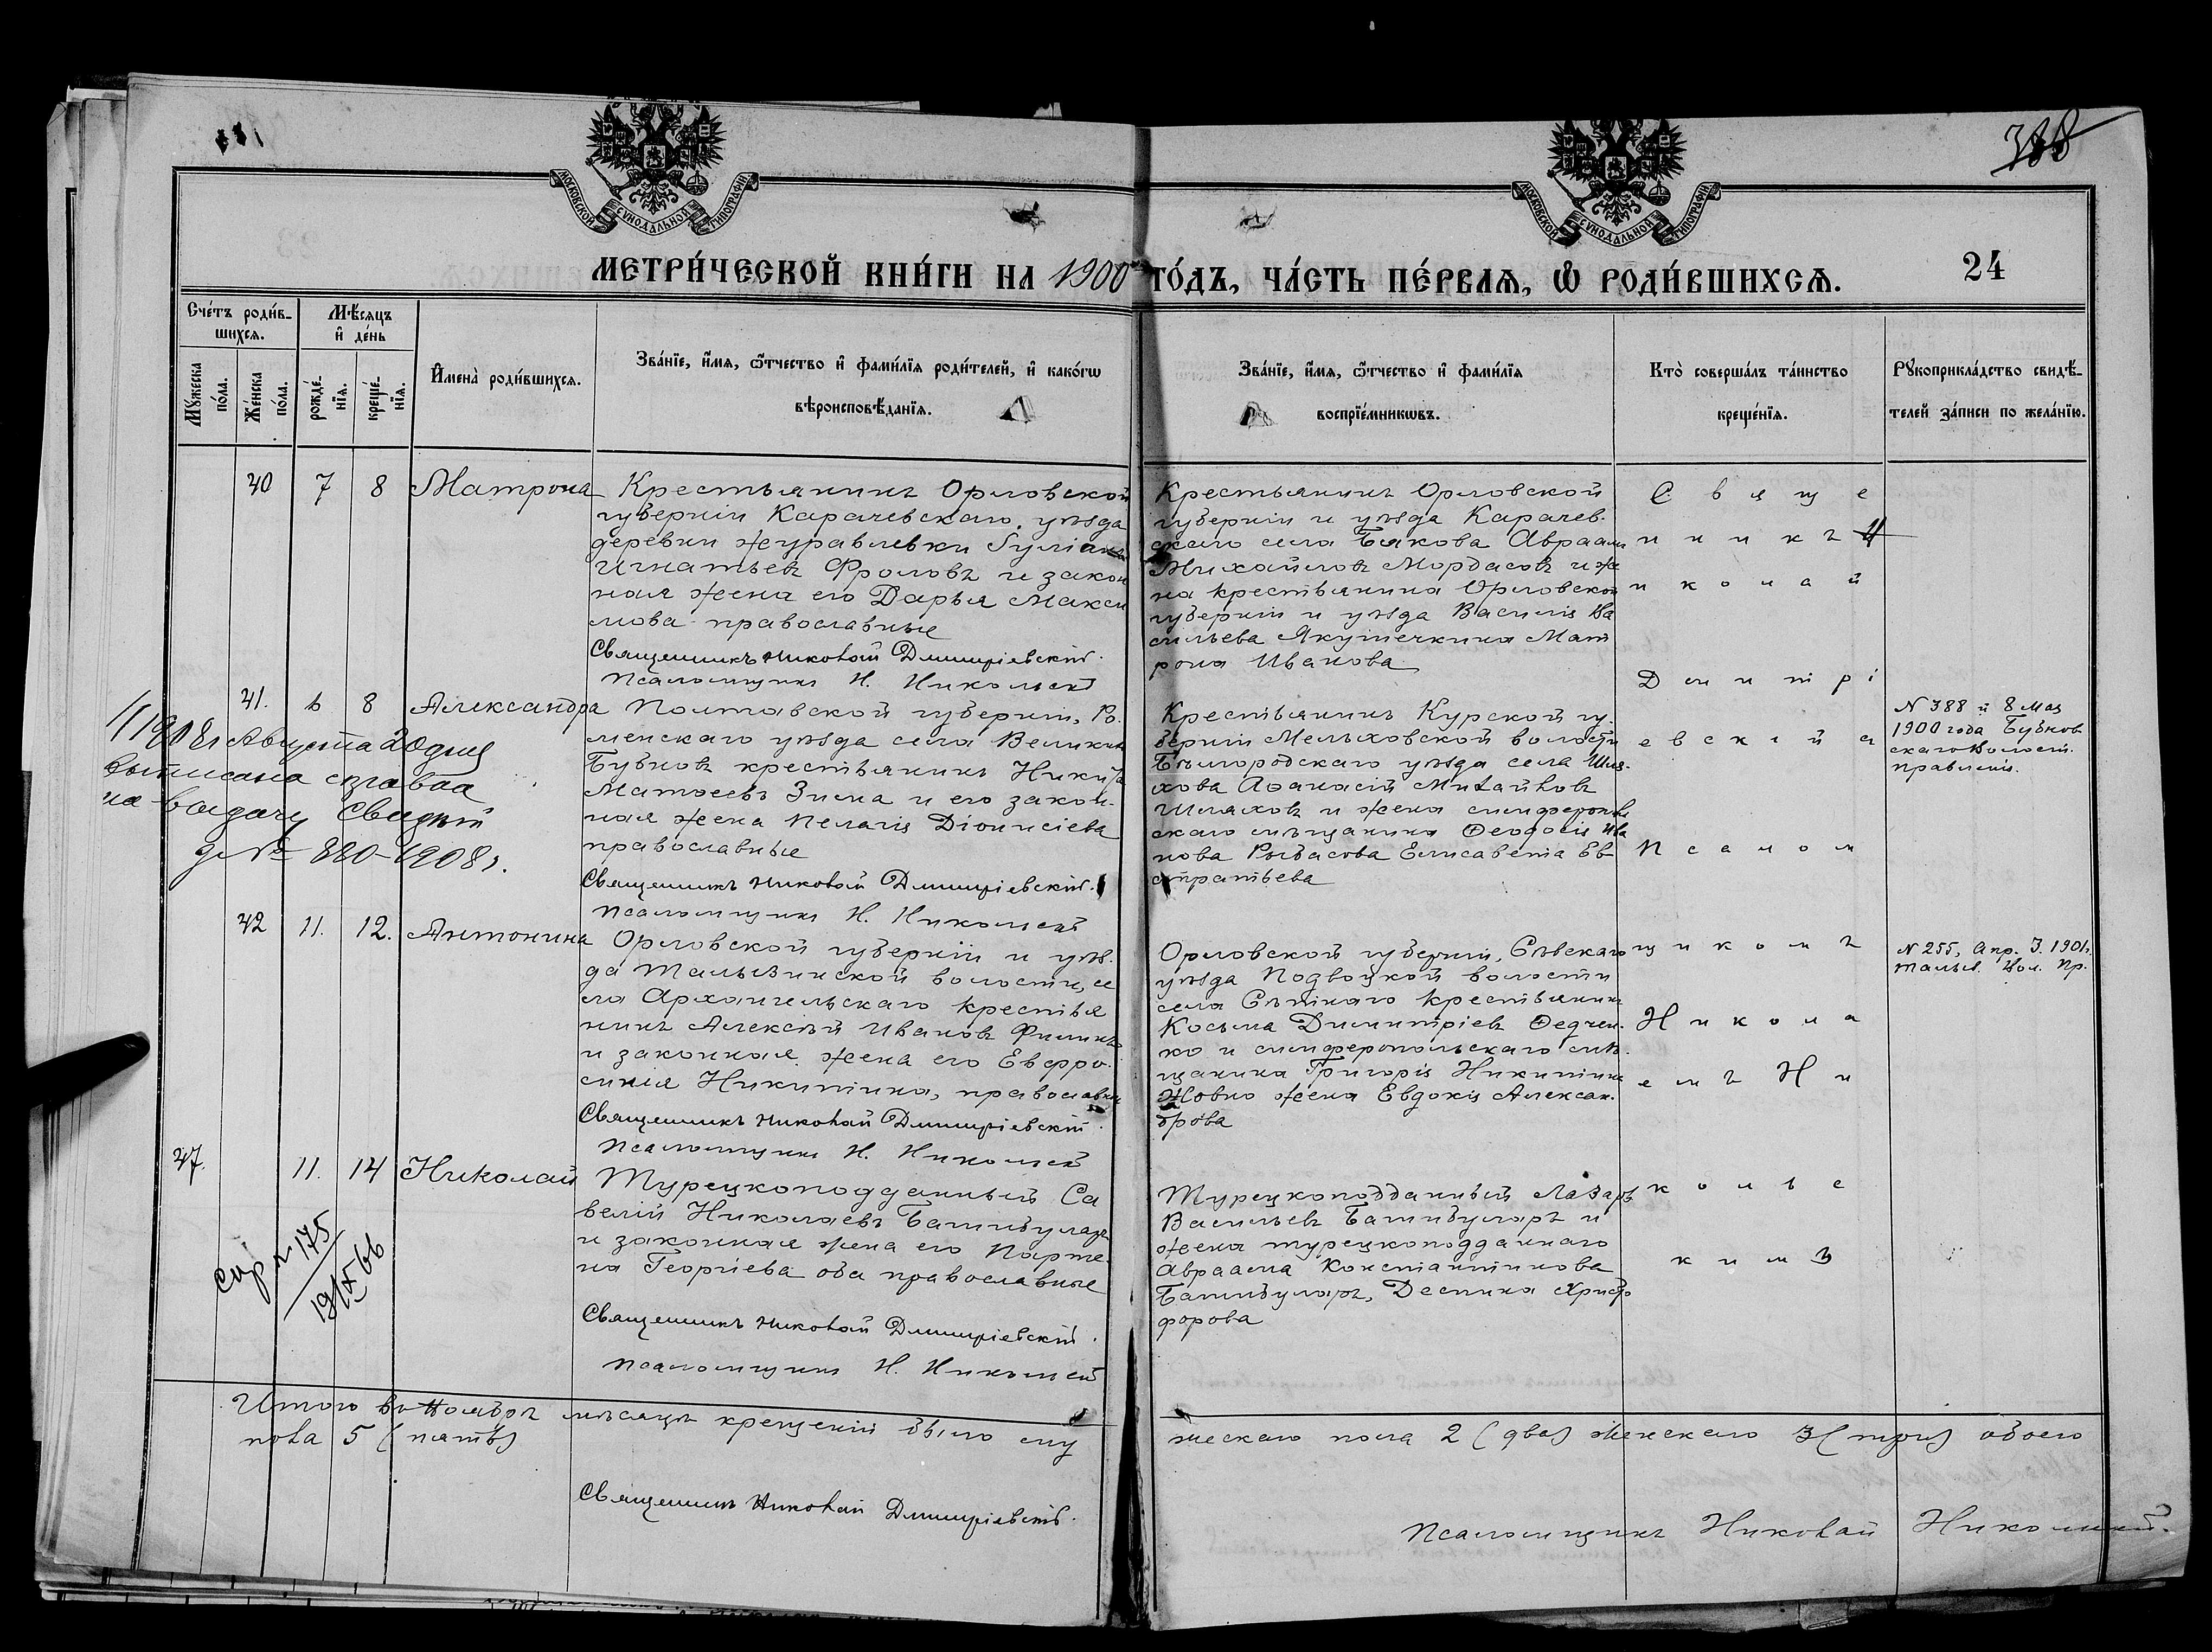 МОСКОВСКОЙ СѴНОДАЛЬНОЙ ТИПОГРАФІИ
МОСКОВСКОЙ СѴНОДАЛЬНОЙ ТИПОГРАФІИ
МЕТРИ́ЧЕСКОЙ КНИ́ГИ НА 1900 ГО́ДЪ, ЧА́СТЬ ПЕ́РВАЯ, Ѡ҆ РОДИ́ВШИХСЯ.
24
Сче́тъ роди́в-
шихся.
Мѣ́сяцъ
и҆ де́нь
Му́жеска
по́ла.
Же́нска
по́ла.
рожде́-
нїя.
креще́-
нїя.
И҆мена̀ роди́вшихся.
Зва́нїе, и҆́мя, ѻ҆́тчество и҆ фами́лїя роди́телей, и҆ како́гѡ
вѣроисповѣ́данїя.
Зва́нїе, и҆́мя, ѻ҆́тчество и҆ фами́лїя
воспрїе́мникѡвъ.
Кто̀ соверша́лъ та́инство
креще́нїя.
Рꙋкоприкла́дство свидѣ́-
телей за́писи по жела́нїю.
40 7 8 Матрона
Крестьянинъ Орловской
губерніи Карачевскаго уѣзда
деревни Журавлевки Іуліанъ
Игнатьевъ Фроловъ и закон
ная жена его Дарья Макси
мова православные
Священникъ Николай Дмитріевскій.
Псаломщикъ Н. Никольскій
Крестьянинъ Орловской
губерніи и уѣзда Карачев-
скаго села Бякова Авраамъ
Михайловъ Мордасовъ и же
на крестьянина Орловской
губерніи и уѣзда Василія Ва
сильева Якушечкина Мат
рона Иванова
С в я щ е
н н и к ъ Н
и к о л а й
Д м и т р і
41. 6 8 Александра
Полтавской губерніи, Ро-
менскаго уѣзда села Великихъ
Бубновъ крестьянинъ Никита
Матѳеевъ Зима и его закон-
ная жена Пелагія Діонисіева
православные
Священникъ Николай Дмитріевскій.
Псаломщикъ Н. Никольскій
1908 г. Августа 20 дня
выписана справка
на выдачу Свидѣт
№ 820-1908 г.
Крестьянинъ Курской гу-
берніи Мелиховской волости
Бѣлгородскаго уѣзда села Шля-
хова Аѳанасій Михайловъ
Шляховъ и жена симферополь
скаго мѣщанина Ѳеодосія Ива
нова Рыбасова Елисавета Ев
стратьева
е в с к і й и
П с а л о м
N 388 и 8 Мая
1900 года Бубнов
скаго Волост.
правленія.
42 11. 12. Антонина
Орловской губерніи и уѣз-
да Тальзинской волости, се
ла Архангельскаго крестья
нинъ Алексѣй Ивановъ Филинъ
и законная жена его Евфро-
синія Никитина, православные
Священникъ Николай Дмитріевскій.
Псаломщикъ Н. Никольскій
Орловской губерніи, Сѣвскаго
уѣзда Подвоцкой волости
села Сѣтнаго крестьянинъ
Косьма Димитріевъ Ѳедчен-
ко и симферопольскаго мѣ-
щанина Григорія Никитина
Жовно жена Евдокія Алексан-
дрова
щ и к о м ъ
Н и к о л а
е м ъ Н и
N 255, Апр. 3. 1901 г.
Тальз. Вол. Пр.
47. 11. 14 Николай
Турецкоподданный Са
велій Николаевъ Башибуларъ
и законная жена его Парте-
на Георгіева оба православные
Священникъ Николай Дмитріевскій.
Псаломщикъ Н. Никольскій
175
19/IX 66
Турецкоподданный Лазарь
Васильевъ Башибуларъ и
жена турецкоподданнаго
Авраама Константинова
Башибуларъ, Деспина Христо
форова
к о л ь с
к и м ъ
Итого въ Ноябрѣ мѣсяцѣ крещеній было му
жескаго пола 2 (два) женскаго 3 (три) обоего
пола 5 (пять)
Священникъ Николай Дмитріевскій.
Псаломщикъ Николай Никольскій.